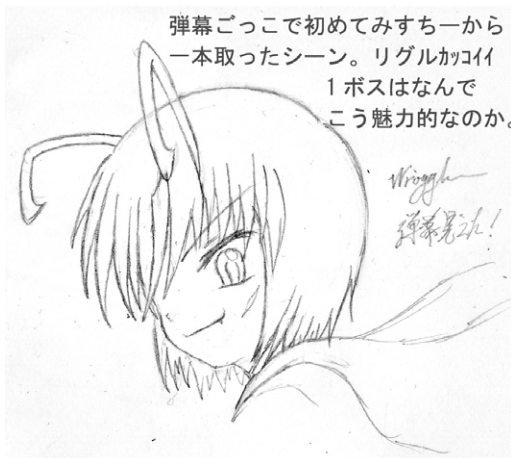 弾幕ごっこで初めてみすちーから
一本取ったシーン。リグルｶｯｺｲｲ
1ボスはなんで
こう魅力的なのか。
Wriggle
弾幕覚えた!